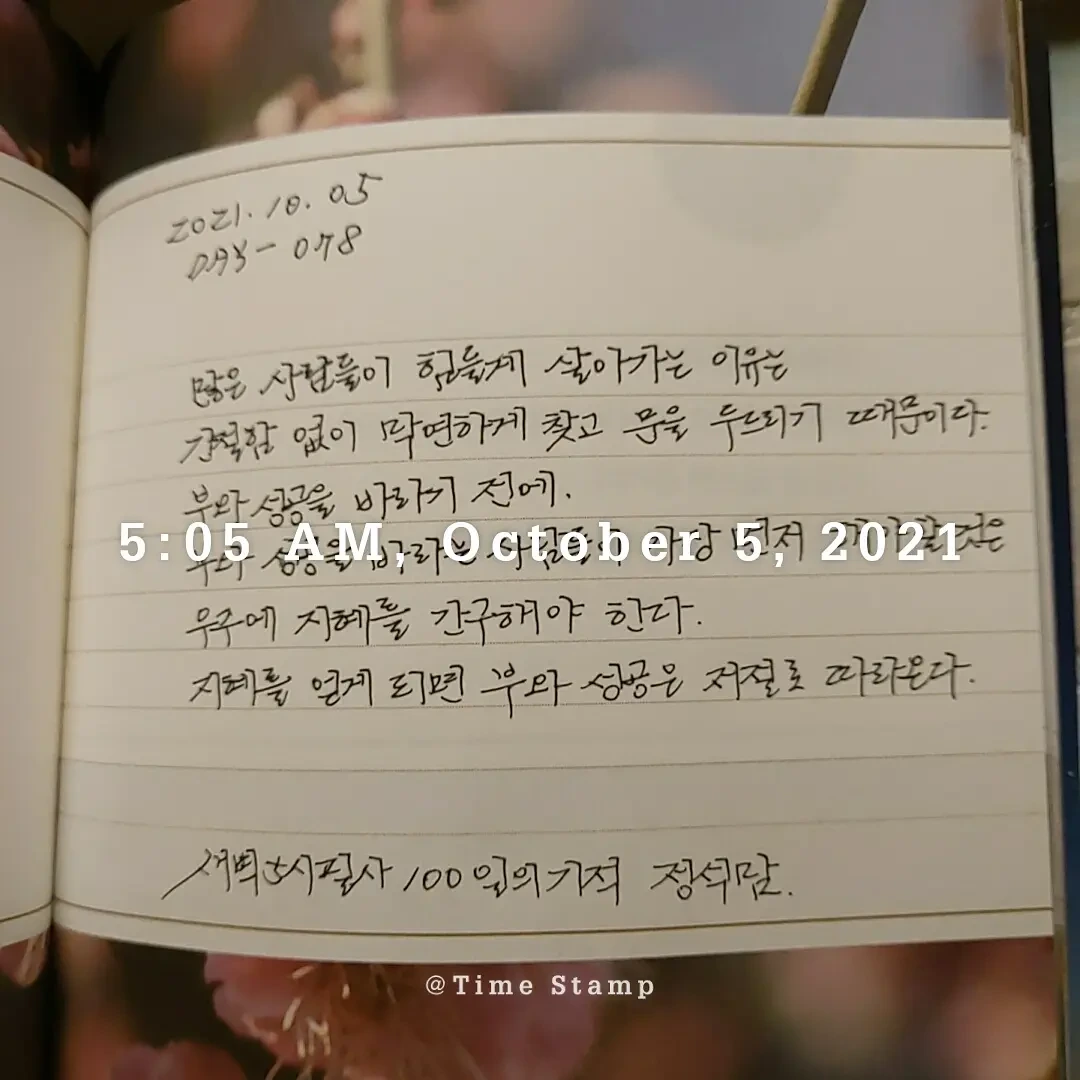 2021.10.05
DAY - 078
많은 사람들이 힘들게 살아가는 이유는
간절함 없이 막연하게 찾고 문을 두드리기 때문이다.
부와 성공을 바라기 전에.
부와 성공을 바라는 가장 먼저
5:05 AM, October 5, 2021
우주에 지혜를 간구해야 한다.
지혜를 얻게 되면 부와 성공은 저절로 따라온다.
새벽5시필사 100일의기적 정석맘.
@Time Stamp